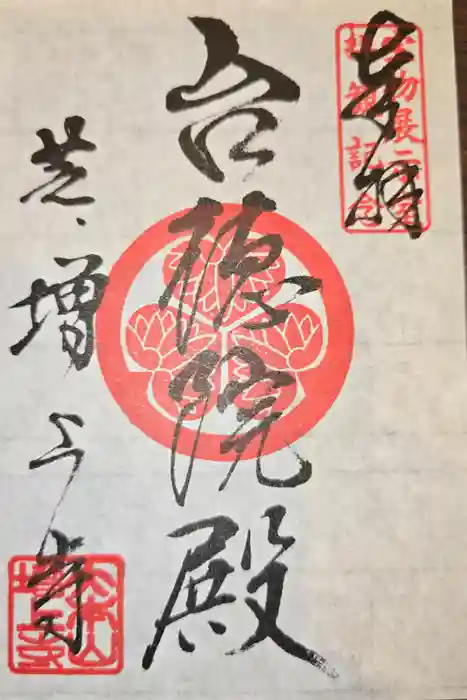 奉拝
宝物展示室
拝観記念
台徳院殿
芝 増上寺
大本山
増上寺